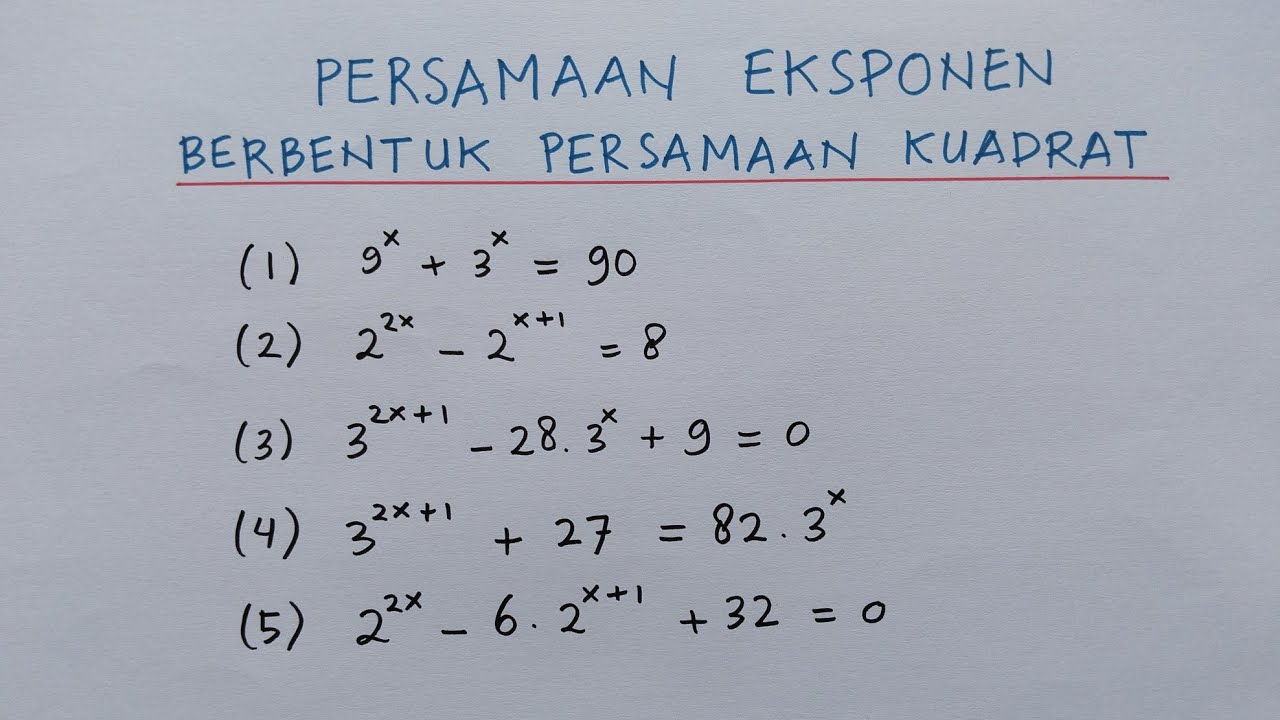 PERSAMAAN EKSPONEN
BERBENTUK PERSAMAAN KUADRAT
(1) 9^x + 3^x = 90
(2) 2^{2x} - 2^{x+1} = 8
(3) 3^{2x+1} - 28.3^x + 9 = 0
(4) 3^{2x+1} + 27 = 82.3^x
(5) 2^{2x} - 6.2^{x+1} + 32 = 0